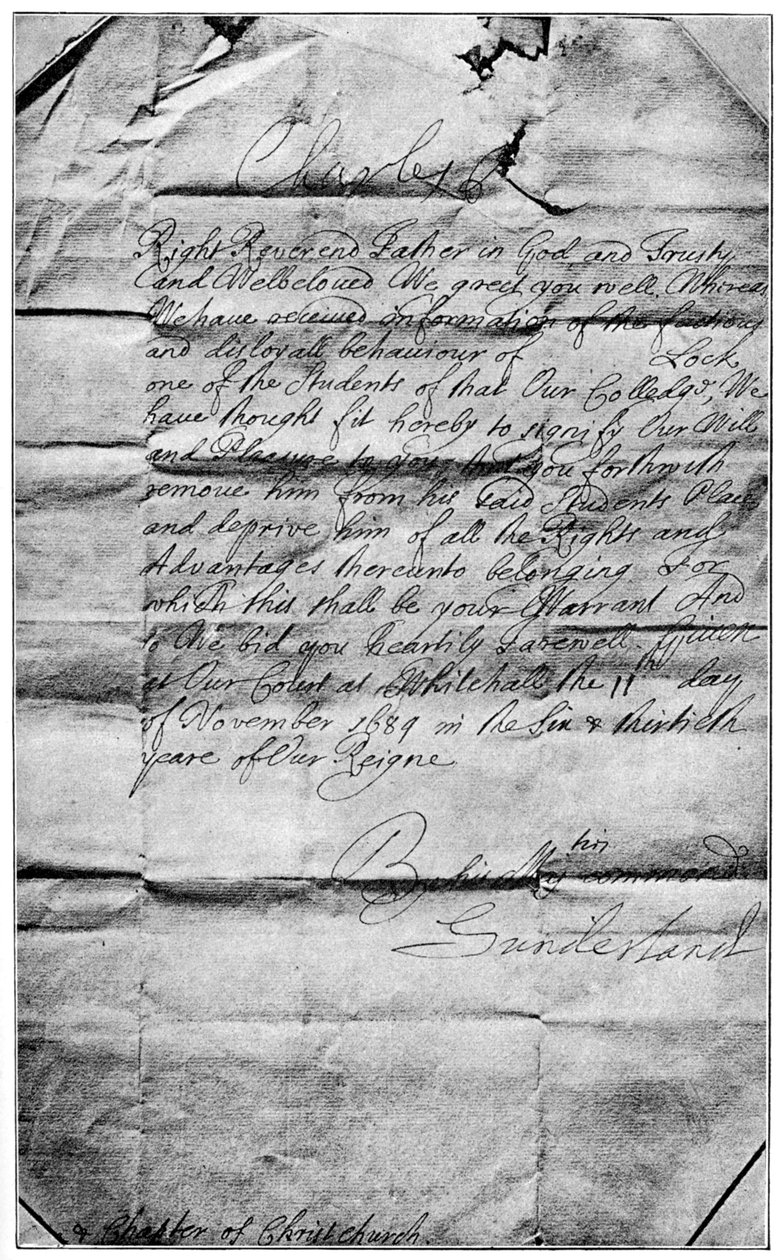 Charles R
Right Reverend Father in God and Trusty
and Welbeloved We greet you well. Whereas
We have received information of the factious
and disloyall behaviour of Lock
one of the Students of that Our Colledge, We
have thought fit hereby to signify Our Will
and Pleasure to you, that you forthwith
remove him from his said Students Place
and deprive him of all the Rights and
Advantages thereunto belonging For
which this shall be your Warrant And
so We bid you heartily farewell. Given
at Our Court at Whitehall the 11th day
of November 1684 in the Six & thirtieth
yeare of Our Reigne
By his Matys command
Sunderland
& Chapter of Christchurch.